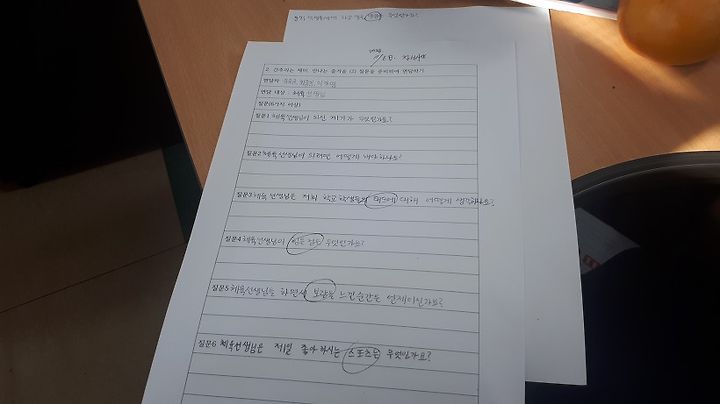 무엇인가요?
2. 간추리는 재미, 만나는 즐거움 (2) 질문을 준비하여 면담하기
면담자
면담 대상 : 체육 선생님
질문(6가지 이상)
질문1 체육선생님이 되신 계기가 무엇인가요?
질문2 체육 선생님이 되려면 어떻게 해야하나요?
질문3 체육 선생님은 저희 학교 학생들의 태도에 대해 어떻게 생각하나요?
질문4 체육선생님이 힘든 일은 무엇인가요?
질문5 체육선생님을 하면서 보람을 느낀순간은 언제이신가요?
질문6 체육선생님은 제일 좋아하시는 스포츠는 무엇인가요?